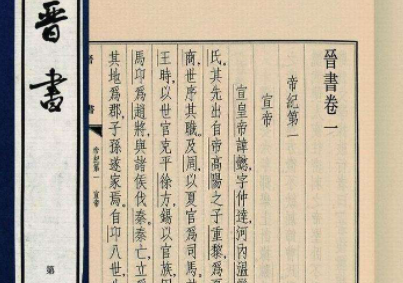 晉書卷一
帝紀第一
宣帝
宣皇帝諱懿，字仲達，河內溫
氏。其先出自帝高陽之子重黎，爲
商，世序其職。及周，以夏官爲司馬。
王時，以世官克平徐方，錫以官族，因
馬卬爲趙將，與諸侯伐秦。秦亡，立
其地爲郡，子孫遂家焉。自卬八世，
書
帝紀第一 宣帝
晉書
第